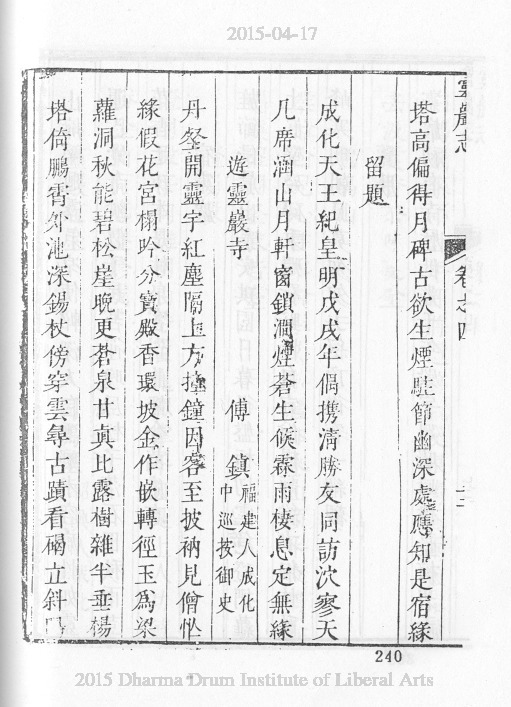 2015-04-17
靈巖志 卷之四
塔高偏得月碑古欲生煙駐節幽深處應知是宿緣
留題
成化天王紀皇明戊戌年偶携清勝友同訪泬寥天
几席涵山月軒窗鎖澗煙蒼生候霖雨棲息定無緣
遊靈巖寺 傅鎮 福建人成化
中巡按御史
丹壑開靈宇紅塵隔上方撞鐘因客至披衲見僧忙
緣假花宮榻吟分寶殿香環坡金作嵌轉徑玉爲梁
蘿洞秋能碧松崖晚更蒼泉甘眞比露樹雜半垂楊
塔倚鵬霄外池深錫杖傍穿雲尋古蹟看碣立斜
240
2015 Dharma Drum Institute of Liberal Arts